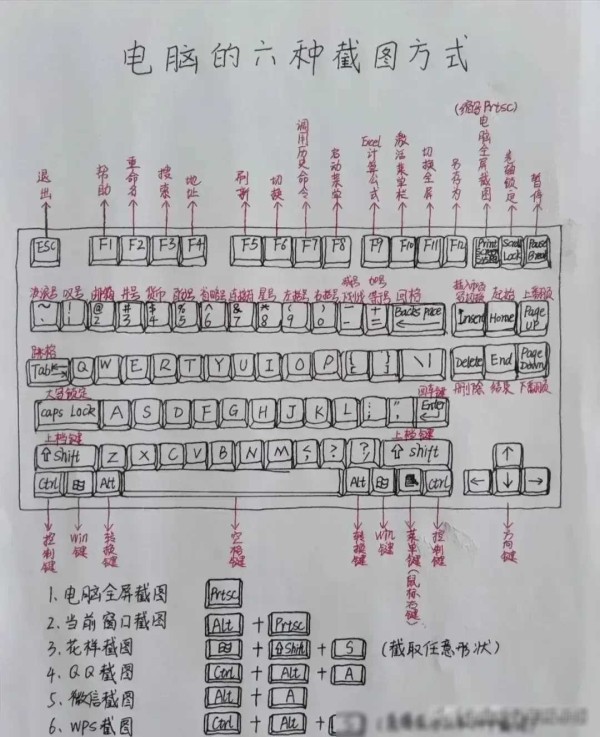 电脑的六种截图方式
(缩写Prtsc)
退出 帮助 重命名 搜索 地址 刷新 切换 调用历史命令 启动菜单 Excel计算公式 激活菜单栏 切换全屏 另存为 电脑全屏截图 暂停
ESC F1 F2 F3 F4 F5 F6 F7 F8 F9 F10 F11 F12 Print Screen Scroll Lock Pause Break
叹号 井号 货币 星号 左括号 右括号 回格
~ ! @ 2 # 3 $ 4 % 5 ^ 6 & 7 * 8 ( 9 ) 0 — - + = Backspace Insert Home Page UP
Table Q W E R T Y U I O P { [ } ] \ | Delete End Page Down
大写锁定 回车键 删除 结束 下翻页
caps Lock A S D F G H J K L ; : " , Enter
上档键 上档键
⇧ Shift Z X C V B N M ⇧ Shift ↑
Ctrl Alt Alt Ctrl ← ↓ →
控制键 Win键 转换键 空格键 转换键 Win键 菜单键(鼠标右键) 控制键 方向键
1、电脑全屏截图 Prtsc
2、当前窗口截图 Alt + Prtsc
3、花样截图 + ⇧Shift + S (截取任意形状)
4、QQ截图 Ctrl + Alt + A
5、微信截图 Alt + A
6、WPS截图 Ctrl + Alt +